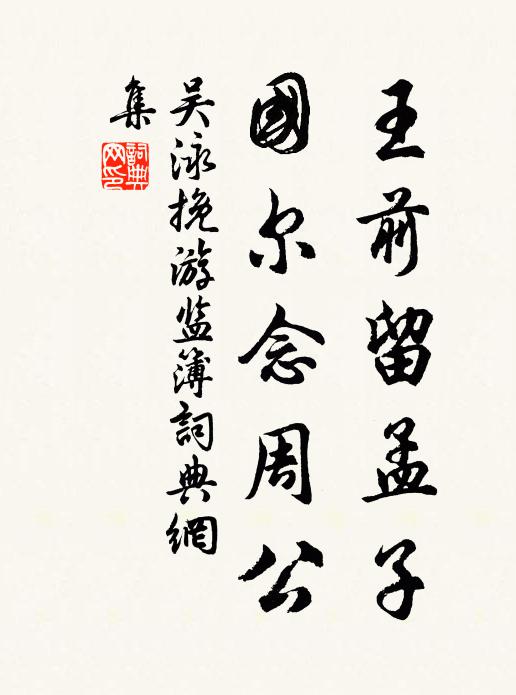 王前留孟子
國尔念周公
吴泳挽游监簿詞典網
集
詞典网印